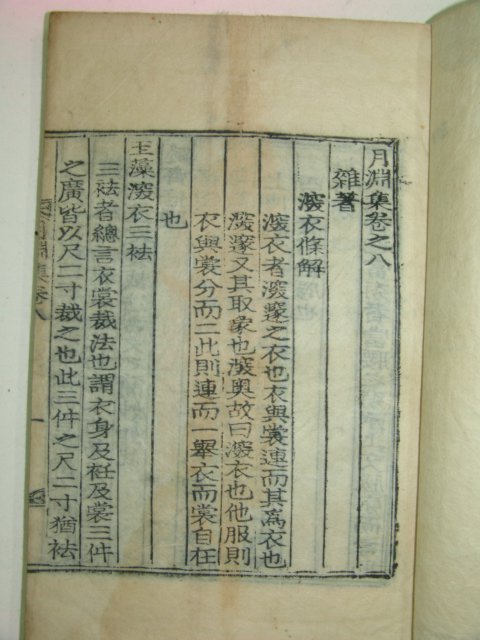 月淵集卷之八
雜著
深衣條解
深衣者深邃之衣也衣與裳連而其爲衣也
深邃又其取象也深奧故曰深衣也他服則
衣與裳分而二此則連而一擧衣而裳自在
也
玉藻深衣三袪
三袪者總言衣裳裁法也謂衣身及衽及裳三件
之廣皆以尺二寸裁之也此三件之尺二寸猶袪
月淵集卷八
一